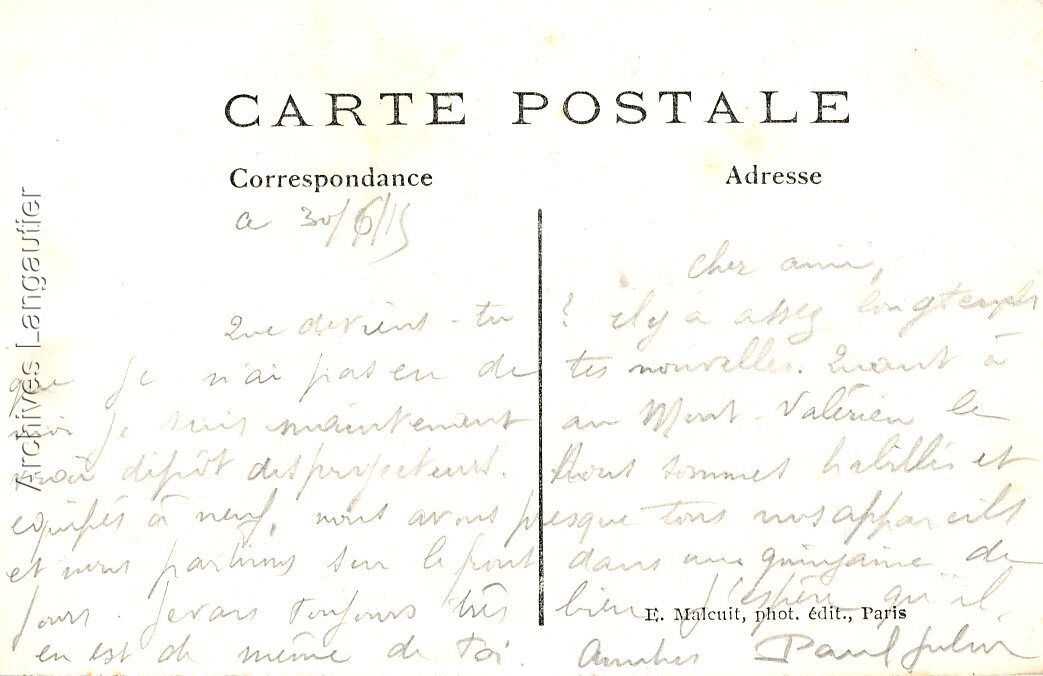 CARTE POSTALE
Correspondance
Adresse
a 30/6/15
Cher ami,
Que devient-tu ? il y a assez longtemps
que je n'ai pas eu de tes nouvelles. Quant à
moi je suis maintenant au Mont-Valérien le
dépôt des projecteurs. Nous sommes habillés et
équipés à neuf, nous avons presque tous nos appareils
et nous partirons sur le front dans une quinzaine de
jours. Je vais toujours très bien j'espère qu'il
en est de même de toi. Amitiés Paul
E. Malcuit, phot. édit., Paris
Archives Langautier